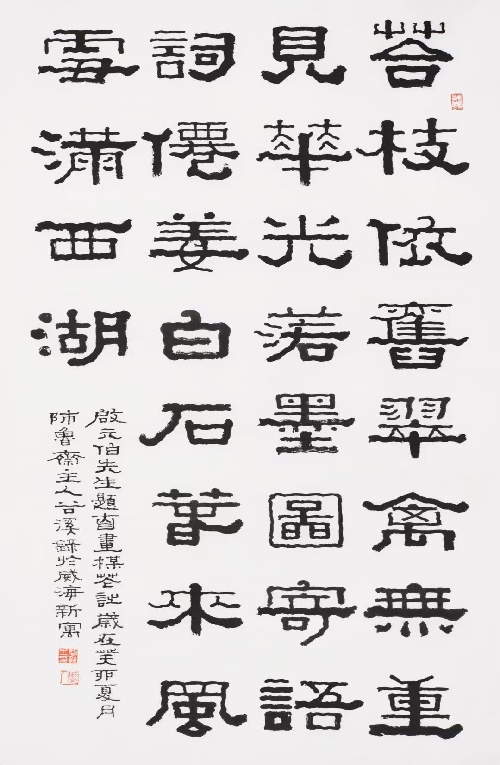 荅枝依舊翠禽無重
見華光落墨圖寄語
詞僊姜白石萅來風
雪滿西湖
啟元伯先生題自畫楳花詩歲在癸卯夏月
師魯齋主人谷溪錄於威海新寓